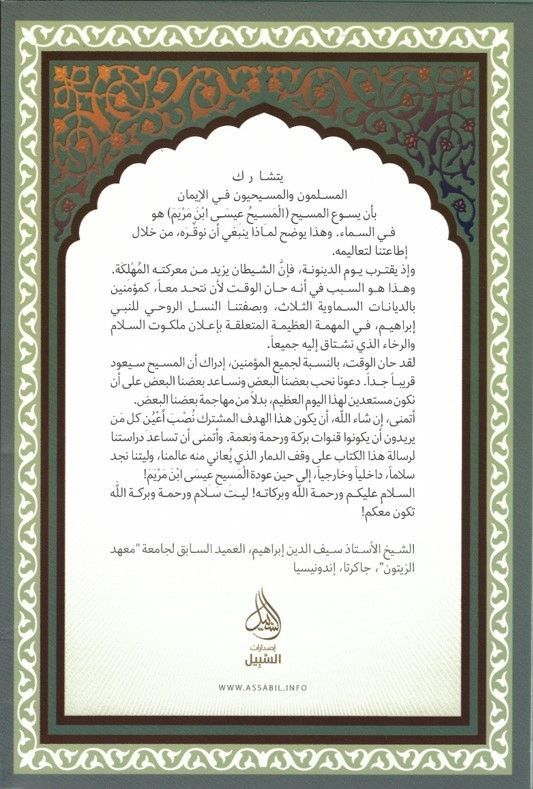 يتشارك
المسلمون والمسيحيون في الإيمان
بأن يسوع المسيح (الْمَسِيحُ عِيسَى ابْنَ مَرْيَمَ) هو
في السماء. وهذا يوضح لماذا ينبغي أن نوقّره، من خلال
إطاعتنا لتعاليمه.
وإذ يقترب يوم الدينونة، فإنَّ الشيطان يزيد من معركته المُهْلكَة.
وهذا هو السبب في أنه حان الوقت لأن نتحد معاً، كمؤمنين
بالديانات السماوية الثلاث، وبصفتنا النسل الروحي للنبي
إبراهيم، في المهمة العظيمة المتعلقة بإعلان ملكوت السلام
والرخاء الذي نشتاق إليه جميعاً.
لقد حان الوقت، بالنسبة لجميع المؤمنين، إدراك أن المسيح سيعود
قريباً جداً. دعونا نحب بعضنا البعض ونساعد بعضنا البعض على أن
نكون مستعدين لهذا اليوم العظيم، بدلاً من مهاجمة بعضنا البعض.
أتمنى، إن شاء اللّه، أن يكون هذا الهدف المشترك نُصْبَ أعْيُن كل مَن
يريدون أن يكونوا قنوات بركة ورحمة ونعمة. وأتمنى أن تساعد دراستنا
لرسالة هذا الكتاب على وقف الدمار الذي يُعاني منه عالمنا، وليتنا نجد
سلاماً، داخلياً وخارجياً، إلى حين عودة الْمَسيح عيسَى ابْنَ مَرْيَمَ!
السلام عليكم ورحمة اللّه وبركاته! ليت سلام ورحمة وبركة اللّه
تكون معكم!
الشيخ الأستاذ سيف الدين إبراهيم، العميد السابق لجامعة "معهد
الزيتون"، جاكرتا، إندونيسيا
السبيل
إصدارات
السَّبِيل
WWW.ASSABIL.INFO